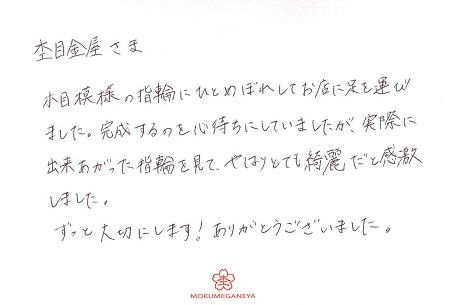 杢目金屋さま
木目模様の指輪にひとめぼれしてお店に足を運び
ました。完成するのを心待ちにしていましたが、実際に
出来あがった指輪を見て、やはりとても綺麗だと感激
しました。
ずっと大切にします！ありがとうございました。
杢
MOKUMEGANEYA